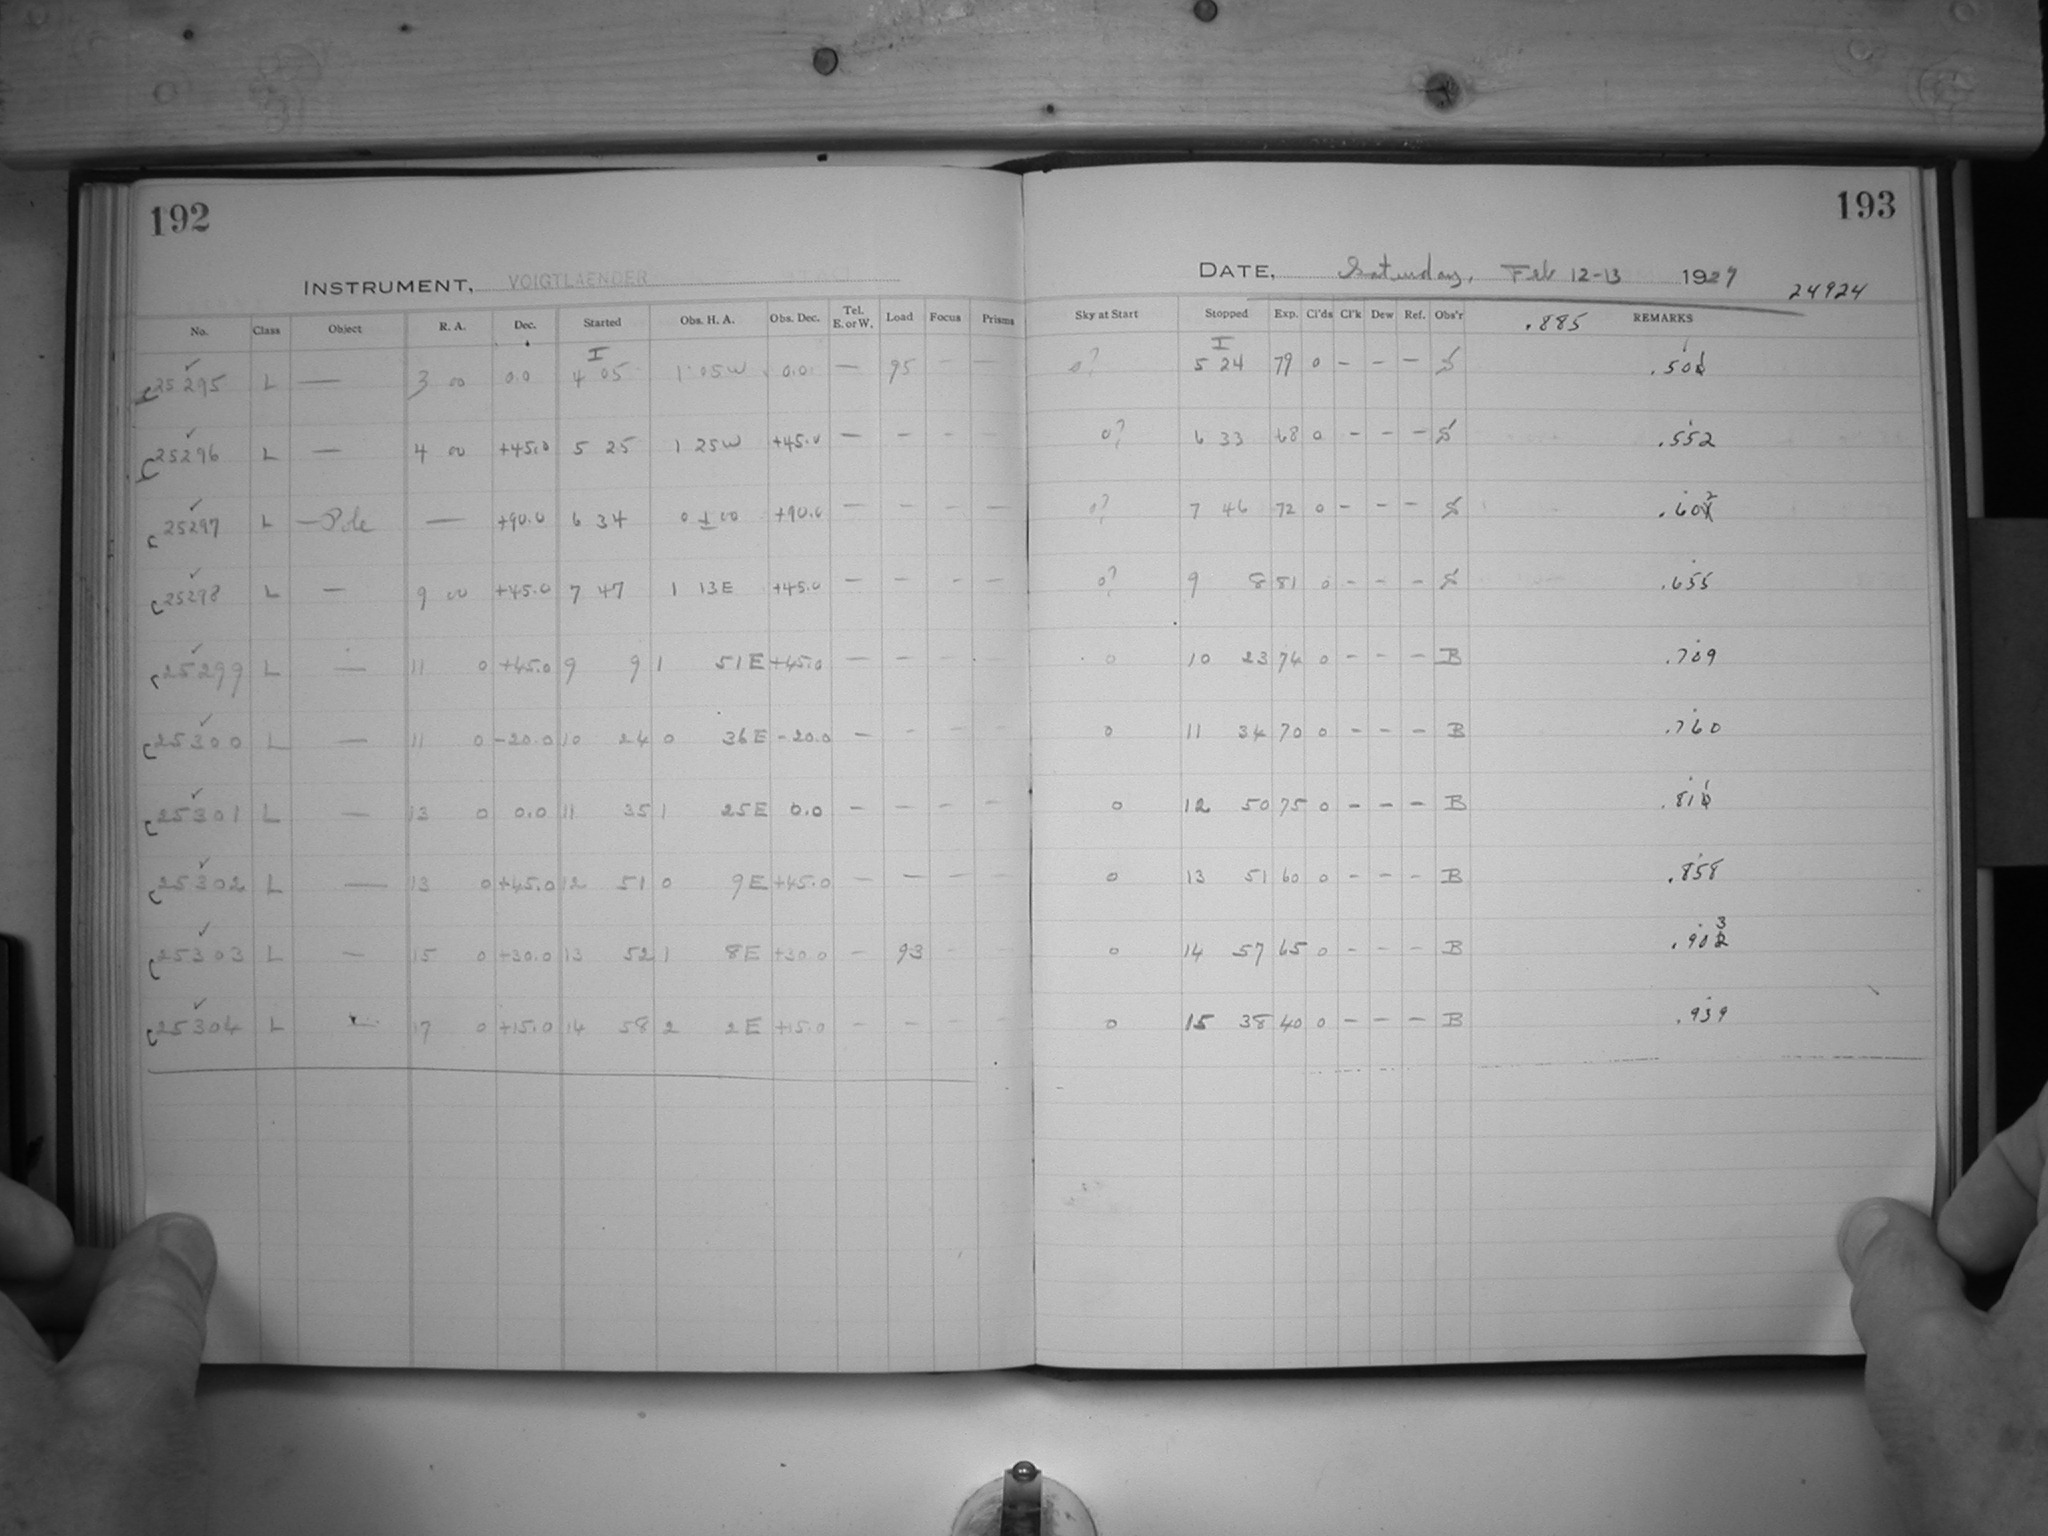 192
INSTRUMENT, VOIGTLAENDER
No. Class Object R. A. Dec. Started Obs. H. A. Obs. Dec. Tel. E. or W. Load Focus Prisms
I
C 25295 ✓ L — 3 00 0.0 4 05 1 05 W 0.0 — 95 — —
C 25296 ✓ L — 4 00 +45.0 5 25 1 25 W +45.0 — — — —
C 25297 ✓ L — Pole — +90.0 6 34 0 ± 00 +90.0 — — — —
C 25298 ✓ L — 9 00 +45.0 7 47 1 13 E +45.0 — — — —
C 25299 ✓ L — 11 0 +45.0 9 9 1 51 E +45.0 — — — —
C 25300 ✓ L — 11 0 -20.0 10 24 0 36 E -20.0 — — — —
C 25301 ✓ L — 13 0 0.0 11 35 1 25 E 0.0 — — — —
C 25302 ✓ L — 13 0 +45.0 12 51 0 9 E +45.0 — — — —
C 25303 ✓ L — 15 0 +30.0 13 52 1 8 E +30.0 — 93 —
C 25304 ✓ L — 17 0 +15.0 14 58 2 2 E +15.0 — — — —
193
DATE, Saturday, Feb 12-13 1927
24924
Sky at Start Stopped Exp. Cl'ds Cl'k Dew Ref. Obs'r .885 REMARKS
I
0? 5 24 79 0 — — — S .501
0? 6 33 68 0 — — — S .552
0? 7 46 72 0 — — — S .602
0? 9 8 81 0 — — — S .655
0 10 23 74 0 — — — B .709
0 11 34 70 0 — — — B .760
0 12 50 75 0 — — — B .811
0 13 51 60 0 — — — B .858
0 14 57 65 0 — — — B .903
0 15 38 40 0 — — — B .939